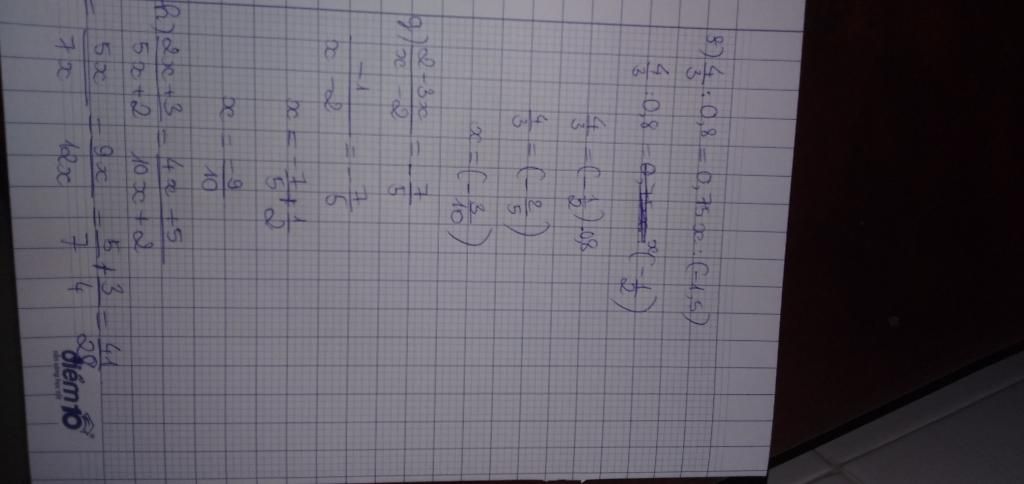 8) 4/3 : 0,8 = 0,75 x : (-1,5)
4/3 : 0,8 = x (-1/2)
4/3 = (-1/2) . 0,8
4/3 = (-2/5)
x = (-3/10)
g) 2 - 3x / x - 2 = -7/5
-1 / x - 2 = -7/5
x = -7/5 + 1/2
x = -9/10
h) 2x + 3 / 5x + 2 = 4x + 5 / 10x + 2
= 5x / 7x = 9x / 12x = 5/7 + 3/4 = 41/28
điểm 10